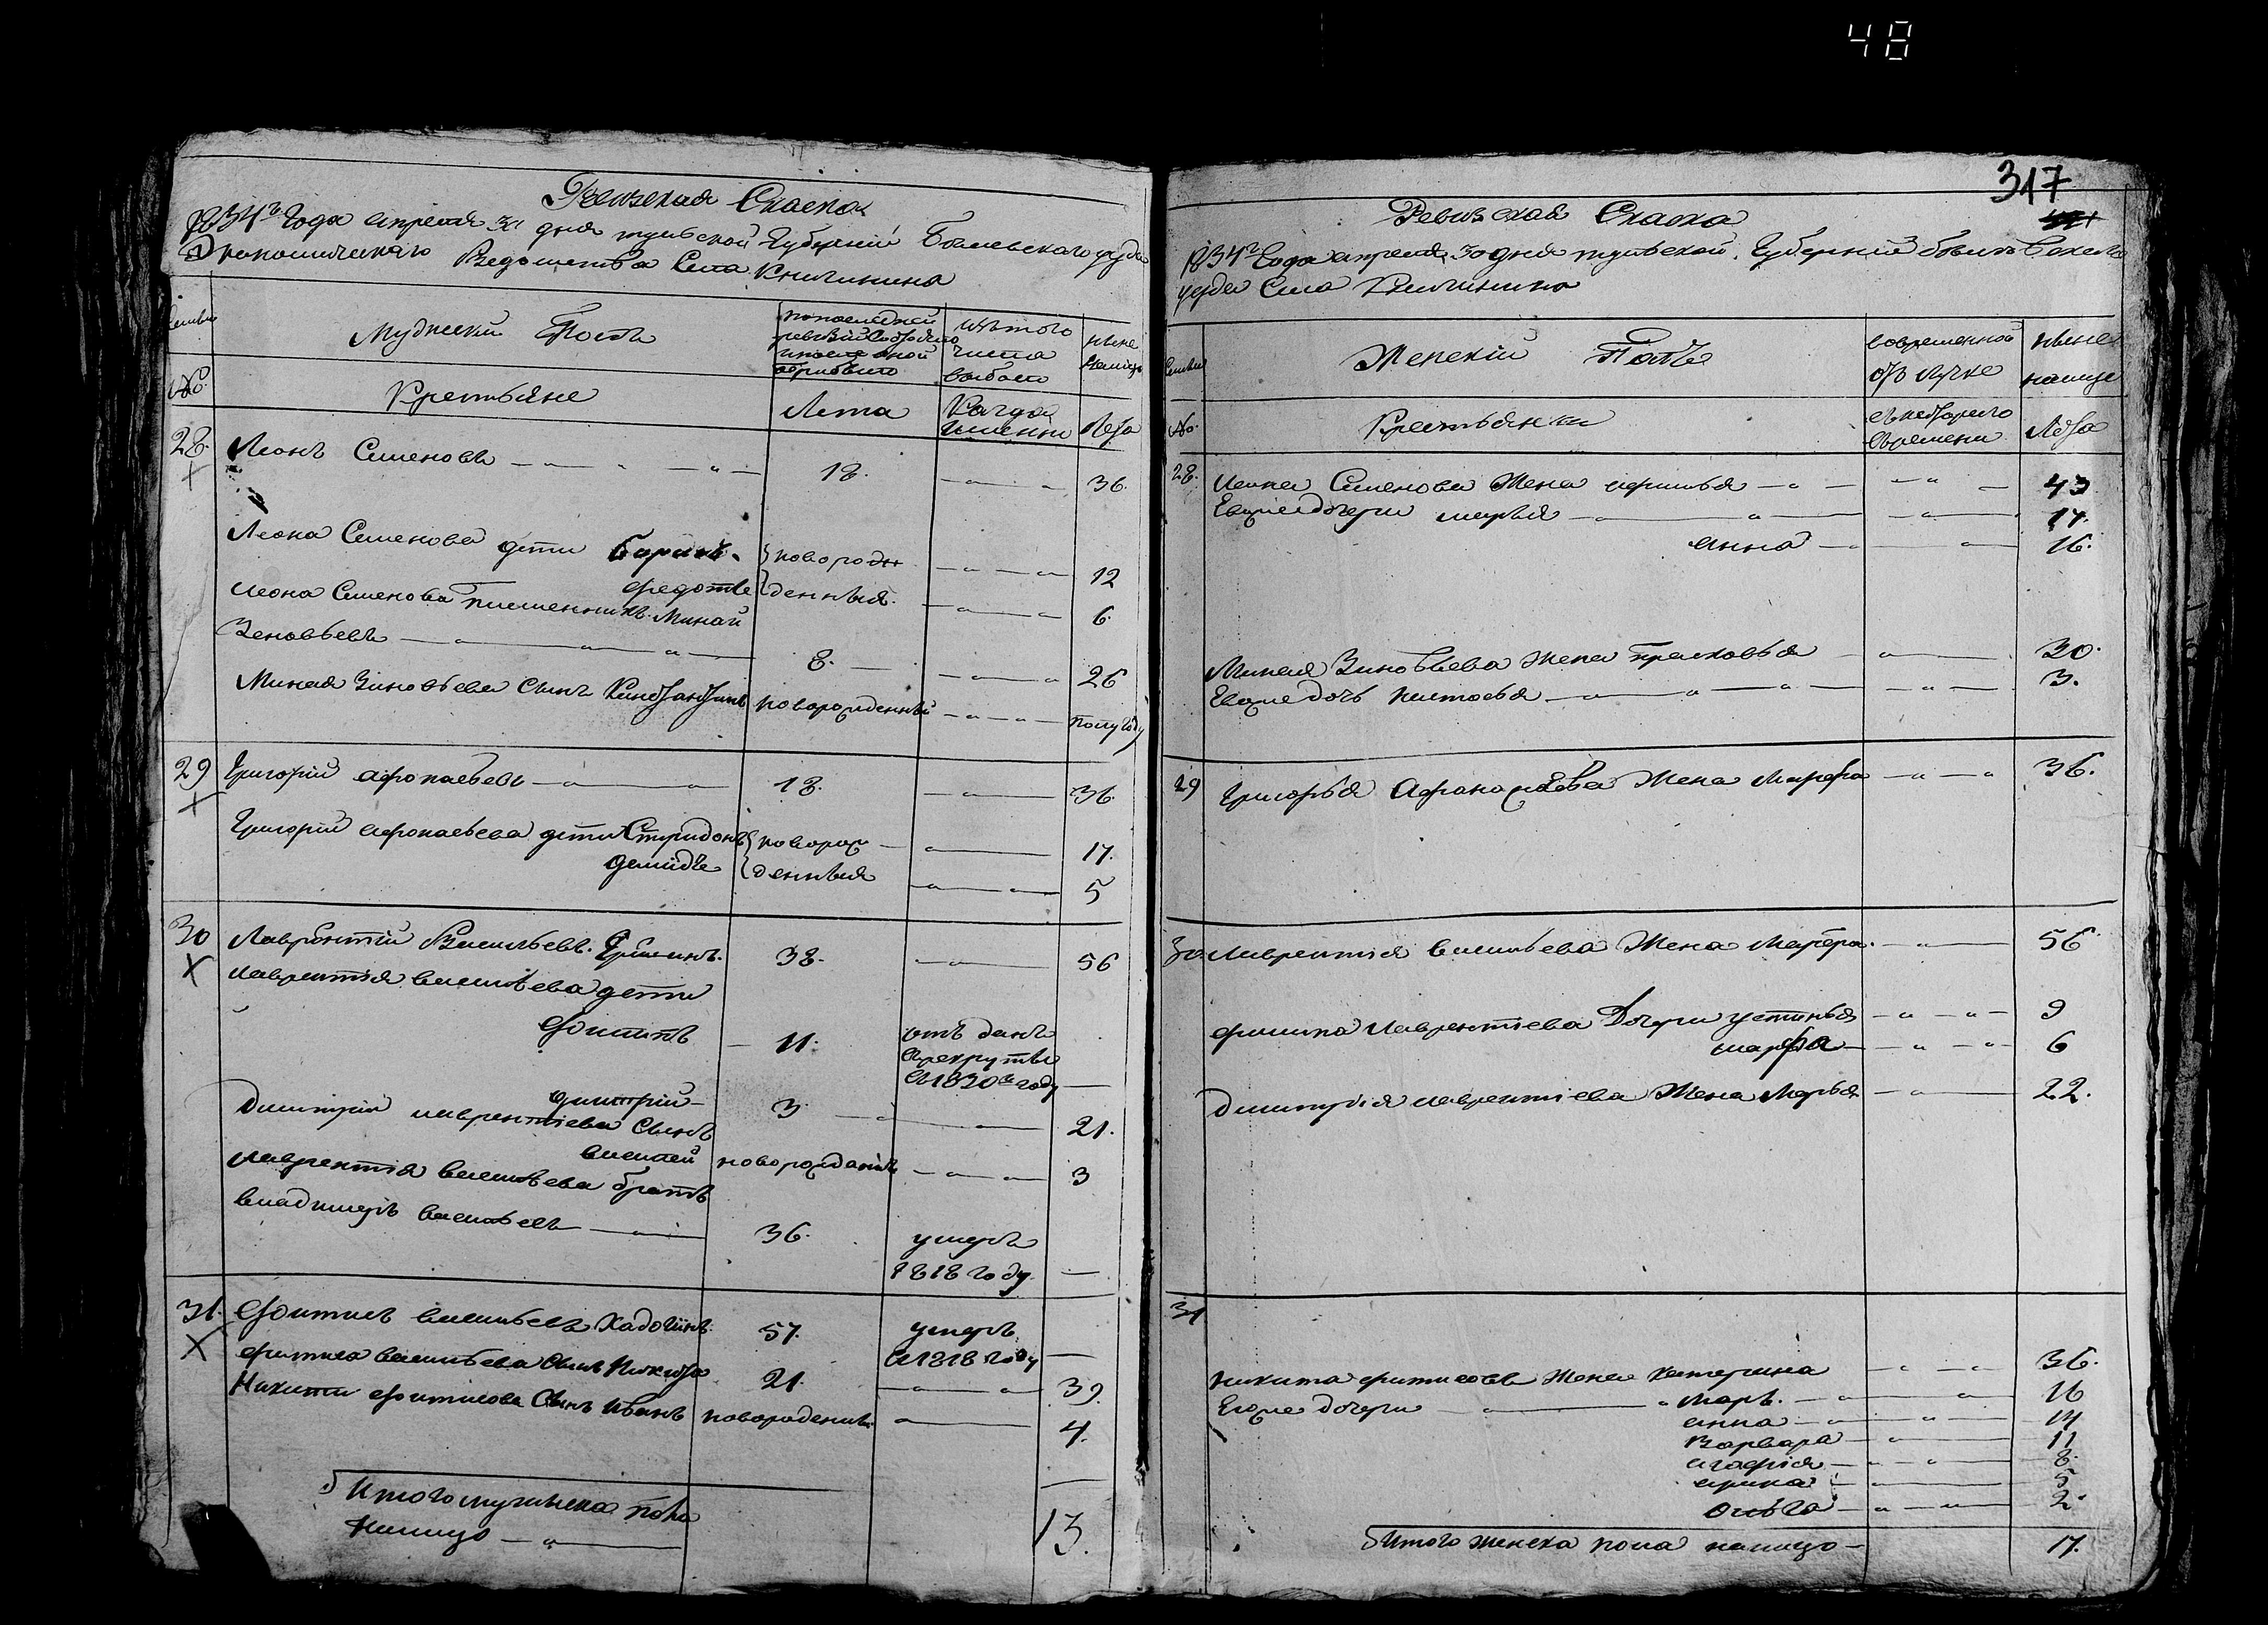 48
Ревизская Сказка
1834го Года апреля 30 дня тульской Губернии Белевского уезда
Экономического Ведомства Села Кничинина
Мужеский Полъ
по последней
ревизий Состояло
и после оной
прибыло
изъ того
числа
выбыло
ныне
налицо
№
Крестьяне
Лета
Когда
именно
Лета
28. Леонъ Семеновъ 18. 36.
Леона Семенова дети Борисъ. новорож 12
Федотъ денныя. 6.
Леона Семенова племенникъ Минай
Зеновьевъ 8. 26
Миная Зиновьева Сынъ Констянтинъ новорожденный полугоду
29 Григорий афонасьевъ 18. 36.
Григорий афонасьева дети Спиридонъ новорож 17.
демидъ денныя 5
30 Лаврентий Васильевъ. Гришинъ. 38. 56
лаврентия васильева дети
Филипъ 11. отъ данъ
в рекруты
в 1830м году
дмитрий 3 21.
Дмитрий лаврентiева Сынъ
василей новорожданны 3
лаврентiя васильева братъ
владимеръ васильевъ 36. умеръ
1818 году.
31. Фотисъ васильевъ 57. умеръ
в 1818 году
фитиса васильева Сынъ Никита 21. 39.
Никити Фитисова Сынъ иванъ новороденны. 4.
Итого мужеска пола
налицо 13.
317
Ревизская Сказка
1834го Года апреля 30 дня тульской Губерний
уезда Села Кничинина
Женский Полъ
во временной
отлучке
ныне
налице
№
Крестьянки
съ которого
времени
Лета
28. Леона Семенова Жена 43
Евожедочери марья 17.
анна 16.
Миная Зиновьева жена Прасковья 30.
Евоже дочь настасья 3.
29 Григорья Афанасьева Жена Марфа 36.
30 Лаврентiя васильева Жена Марфа. 56
филипа лаврентiева Дочери устинья 9
марфа 6
Дмитрiя лаврентiева Жена Марья 22.
31
никита фитисовъ жена катерина 36.
Евоже дочери марь. 16
анна 14
Варвара 11
агафiя 8.
арина 5
Ольга 2
Итого женска пола налицо 17.